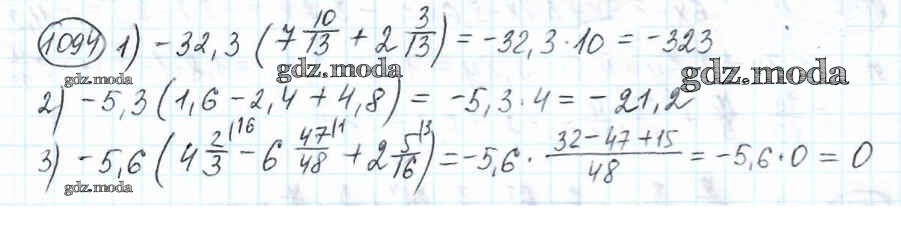 1094 1) -32,3 (7 10/13 + 2 3/13) = -32,3·10 = -323
gdz.moda gdz.moda gdz.moda
2) -5,3 (1,6 - 2,4 + 4,8) = -5,3·4 = -21,2
3) -5,6 (4 2/3 |16 - 6 47/48 |1 + 2 5/16 |3) = -5,6 · (32-47+15)/48 = -5,6·0 = 0
gdz.moda